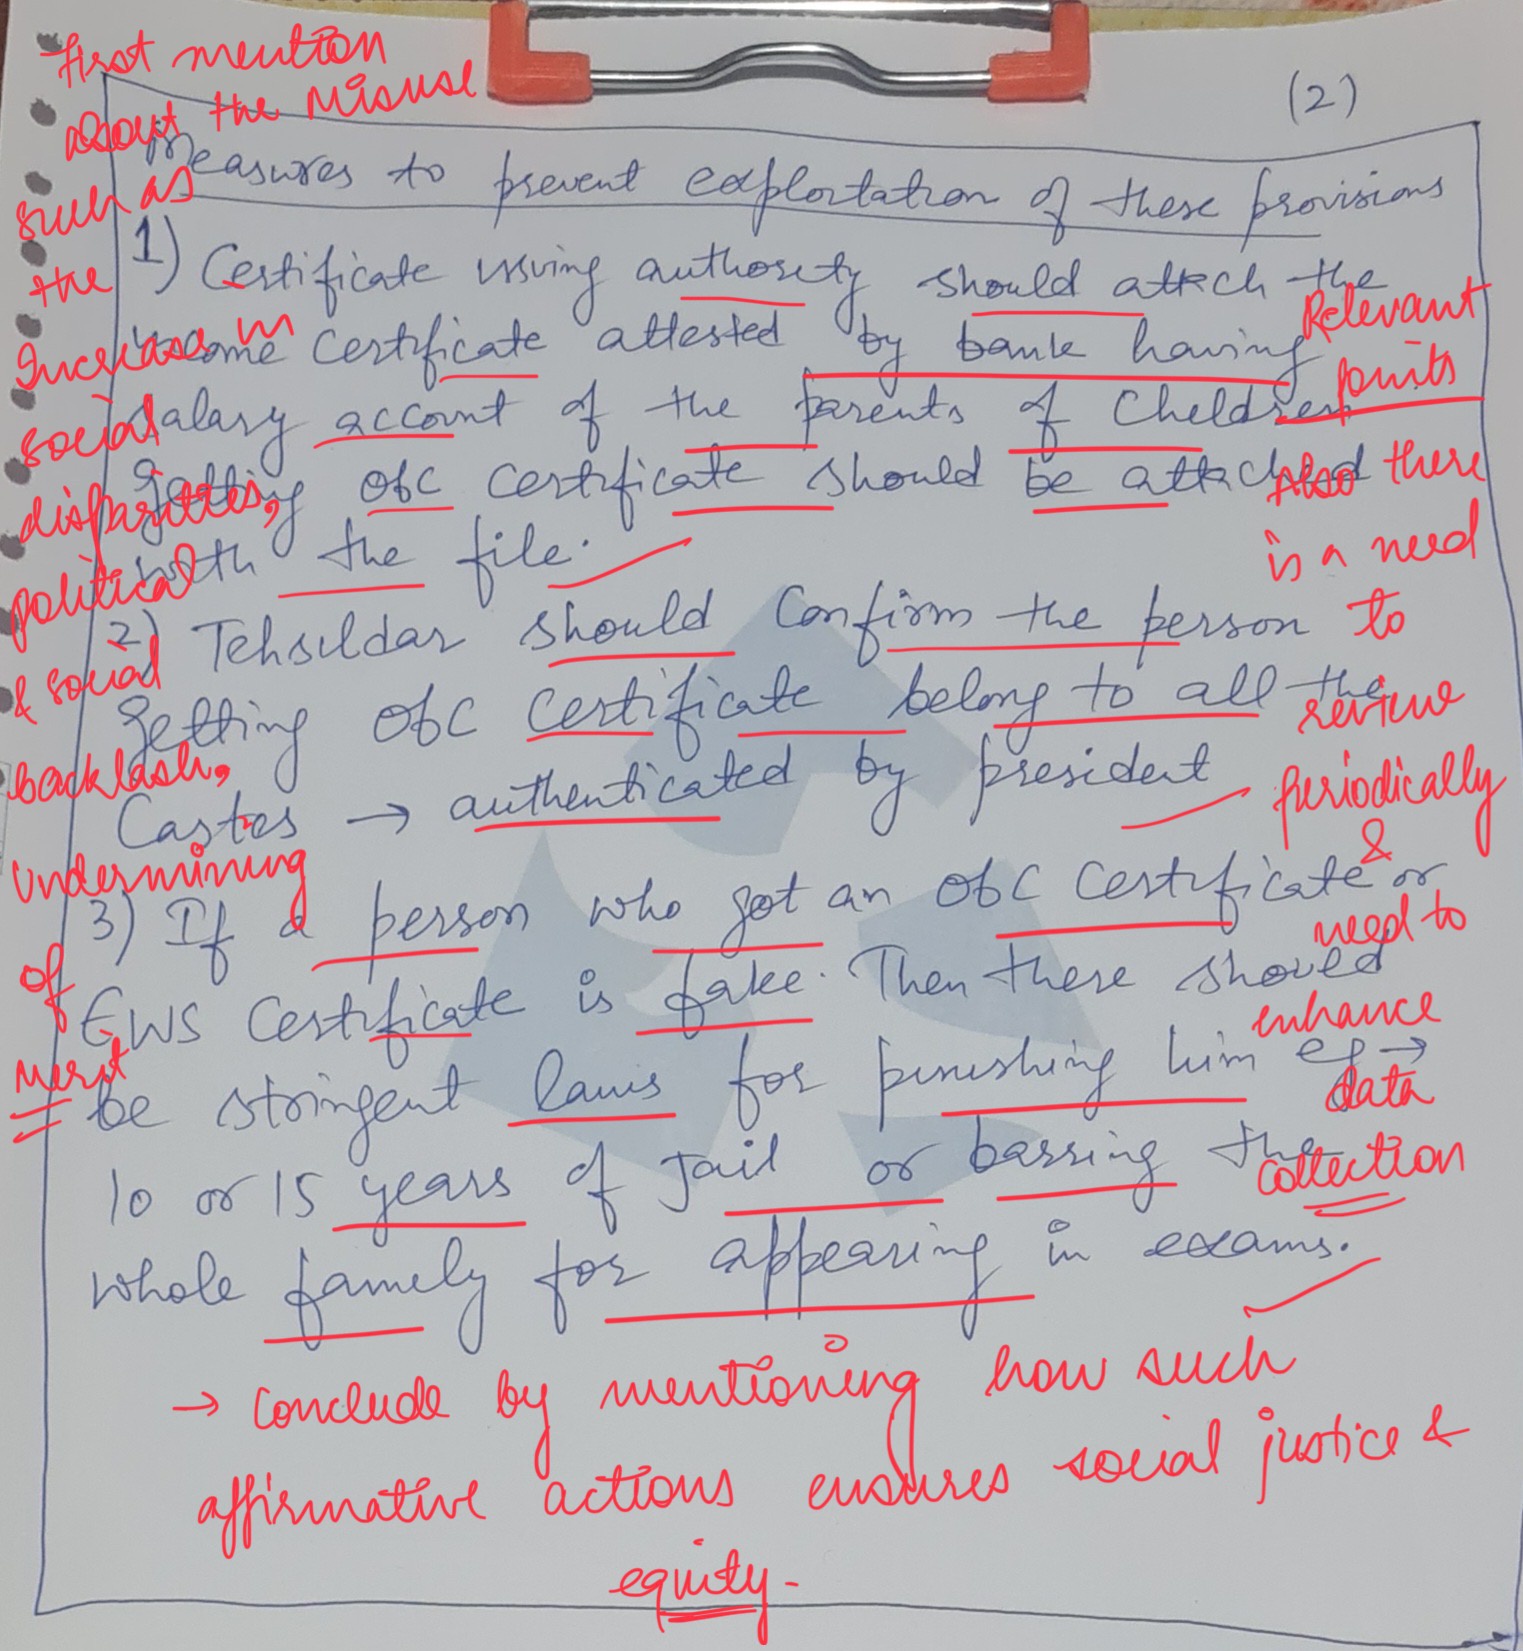 (2)
Measures to prevent exploitation of these provisions
1) Certificate issuing authority should attach the
income certificate attested by bank having
salary account of the parents of children
getting OBC certificate should be attached
with the file.
2) Tehsildar should confirm the person
getting OBC certificate belong to all the
Castes → authenticated by president
3) If a person who got an OBC certificate or
EWS certificate is fake. Then there should
be stringent laws for punishing him eg →
10 or 15 years of Jail or barring the
whole family for appearing in exams.
First mention
about the Misuse
such as
the
Increase in
social
disparities,
political
& social
backlash,
Undermining
of
Merit
Relevant
points
Also there
is a need
to
review
periodically
&
need to
enhance
data
collection
→ Conclude by mentioning how such
affirmative actions ensures social justice &
equity.